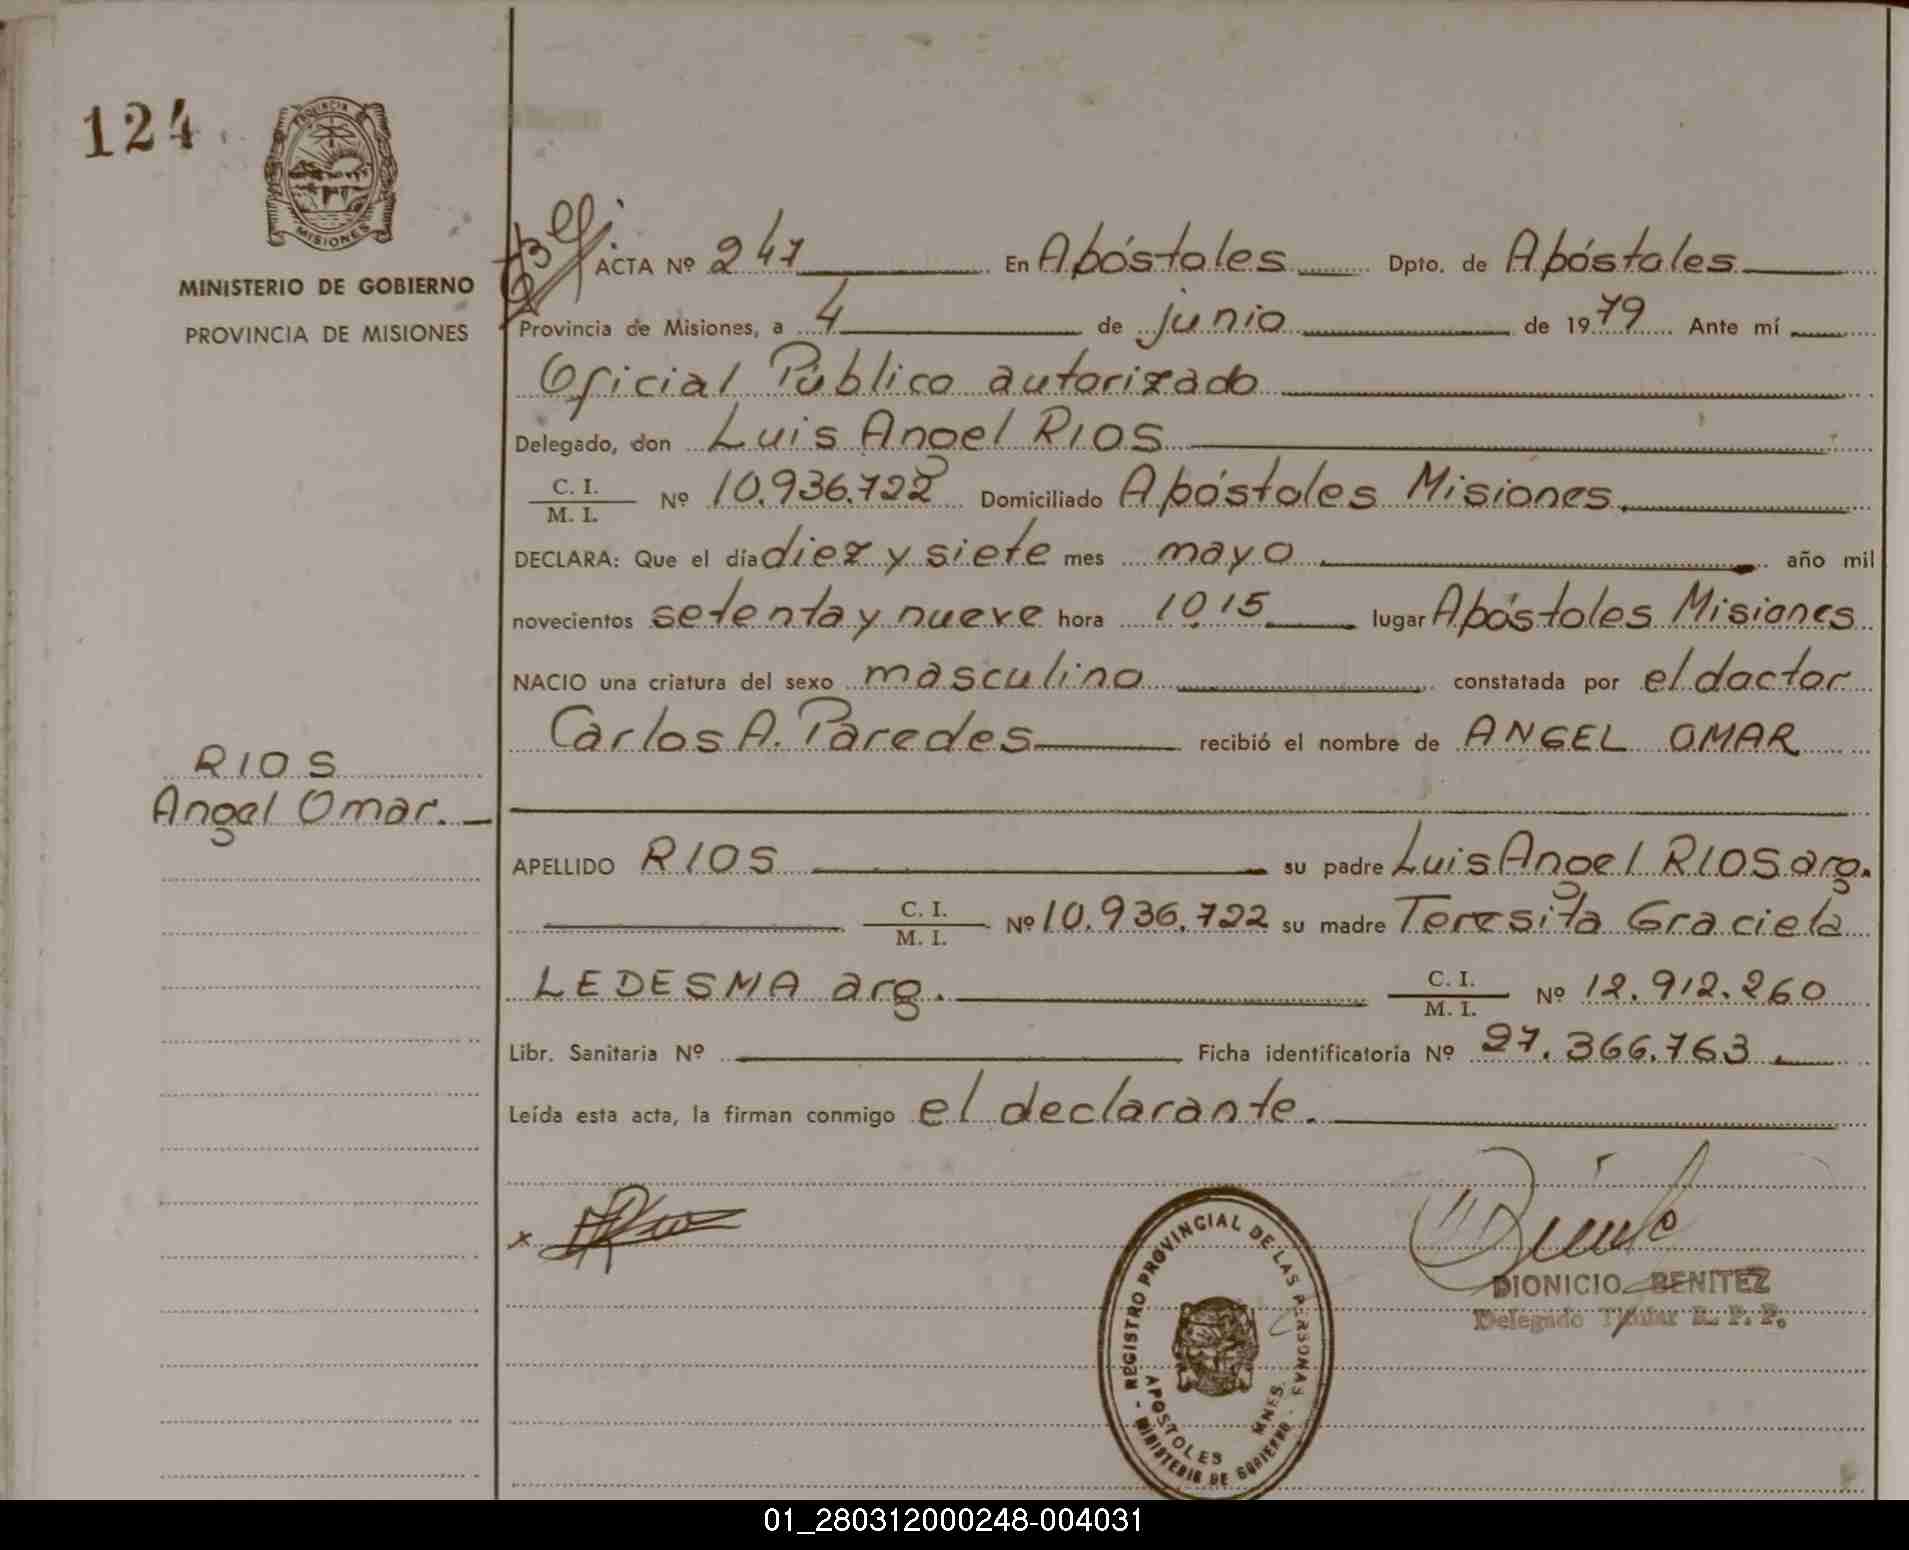 124
PROVINCIA
MISIONES
MINISTERIO DE GOBIERNO
PROVINCIA DE MISIONES
ACTA Nº 247 En Apóstoles Dpto. de Apóstoles
Provincia de Misiones, a 4 de junio de 1979 Ante mí
Oficial Público autorizado
Delegado, don Luis Angel RIOS
C. I.
M. I. Nº 10.936.722 Domiciliado Apóstoles Misiones.
DECLARA: Que el día diez y siete mes mayo año mil
novecientos setenta y nueve hora 10,15 lugar Apóstoles Misiones
NACIO una criatura del sexo masculino constatada por el doctor
Carlos A. Paredes recibió el nombre de ANGEL OMAR
RIOS
Angel Omar.
APELLIDO RIOS su padre Luis Angel RIOS arg.
C. I.
M. I. Nº 10.936.722 su madre Teresita Graciela
LEDESMA arg. C. I.
M. I. Nº 12.912.260
Libr. Sanitaria Nº Ficha identificatoria Nº 27.366.763
Leída esta acta, la firman conmigo el declarante.
x
REGISTRO PROVINCIAL DE LAS PERSONAS
APOSTOLES MNES.
- MINISTERIO DE GOBIERNO -
DIONICIO BENITEZ
Delegado Titular R. P. P.
01_280312000248-004031